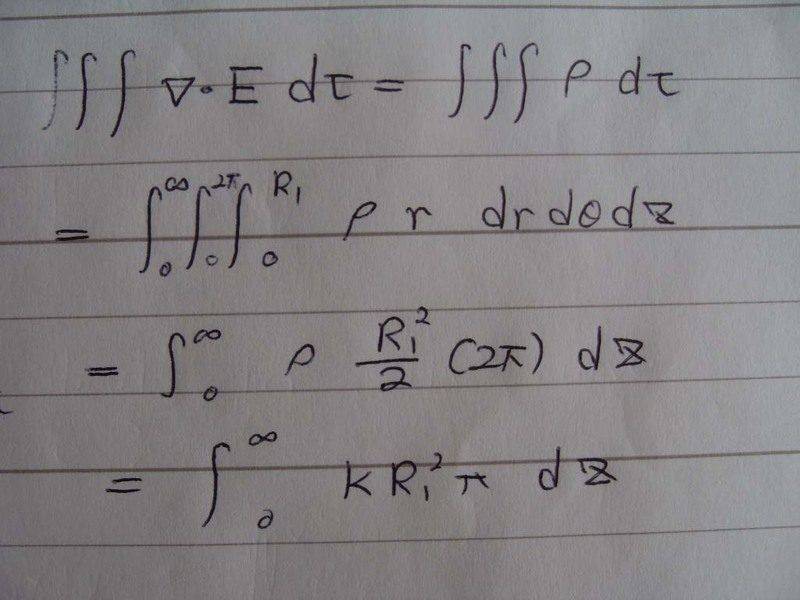 ∫∫∫ ∇·E dτ = ∫∫∫ ρ dτ
= ∫₀^∞ ∫₀^2π ∫₀^R₁ ρ r dr dθ dz
= ∫₀^∞ ρ R₁²/2 (2π) dz
= ∫₀^∞ k R₁² π dz